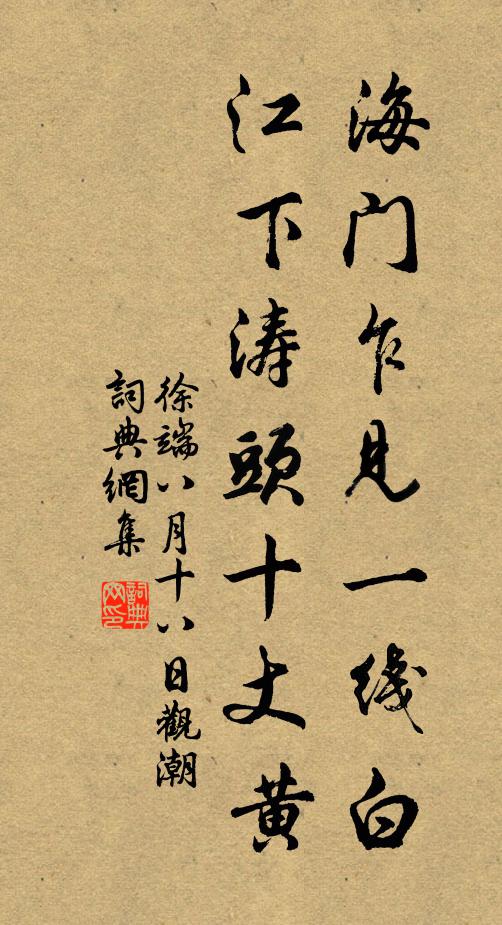 海门乍見一綫白
江下涛頭十丈黄
徐端八月十八日觀潮
詞典網集
詞典网印